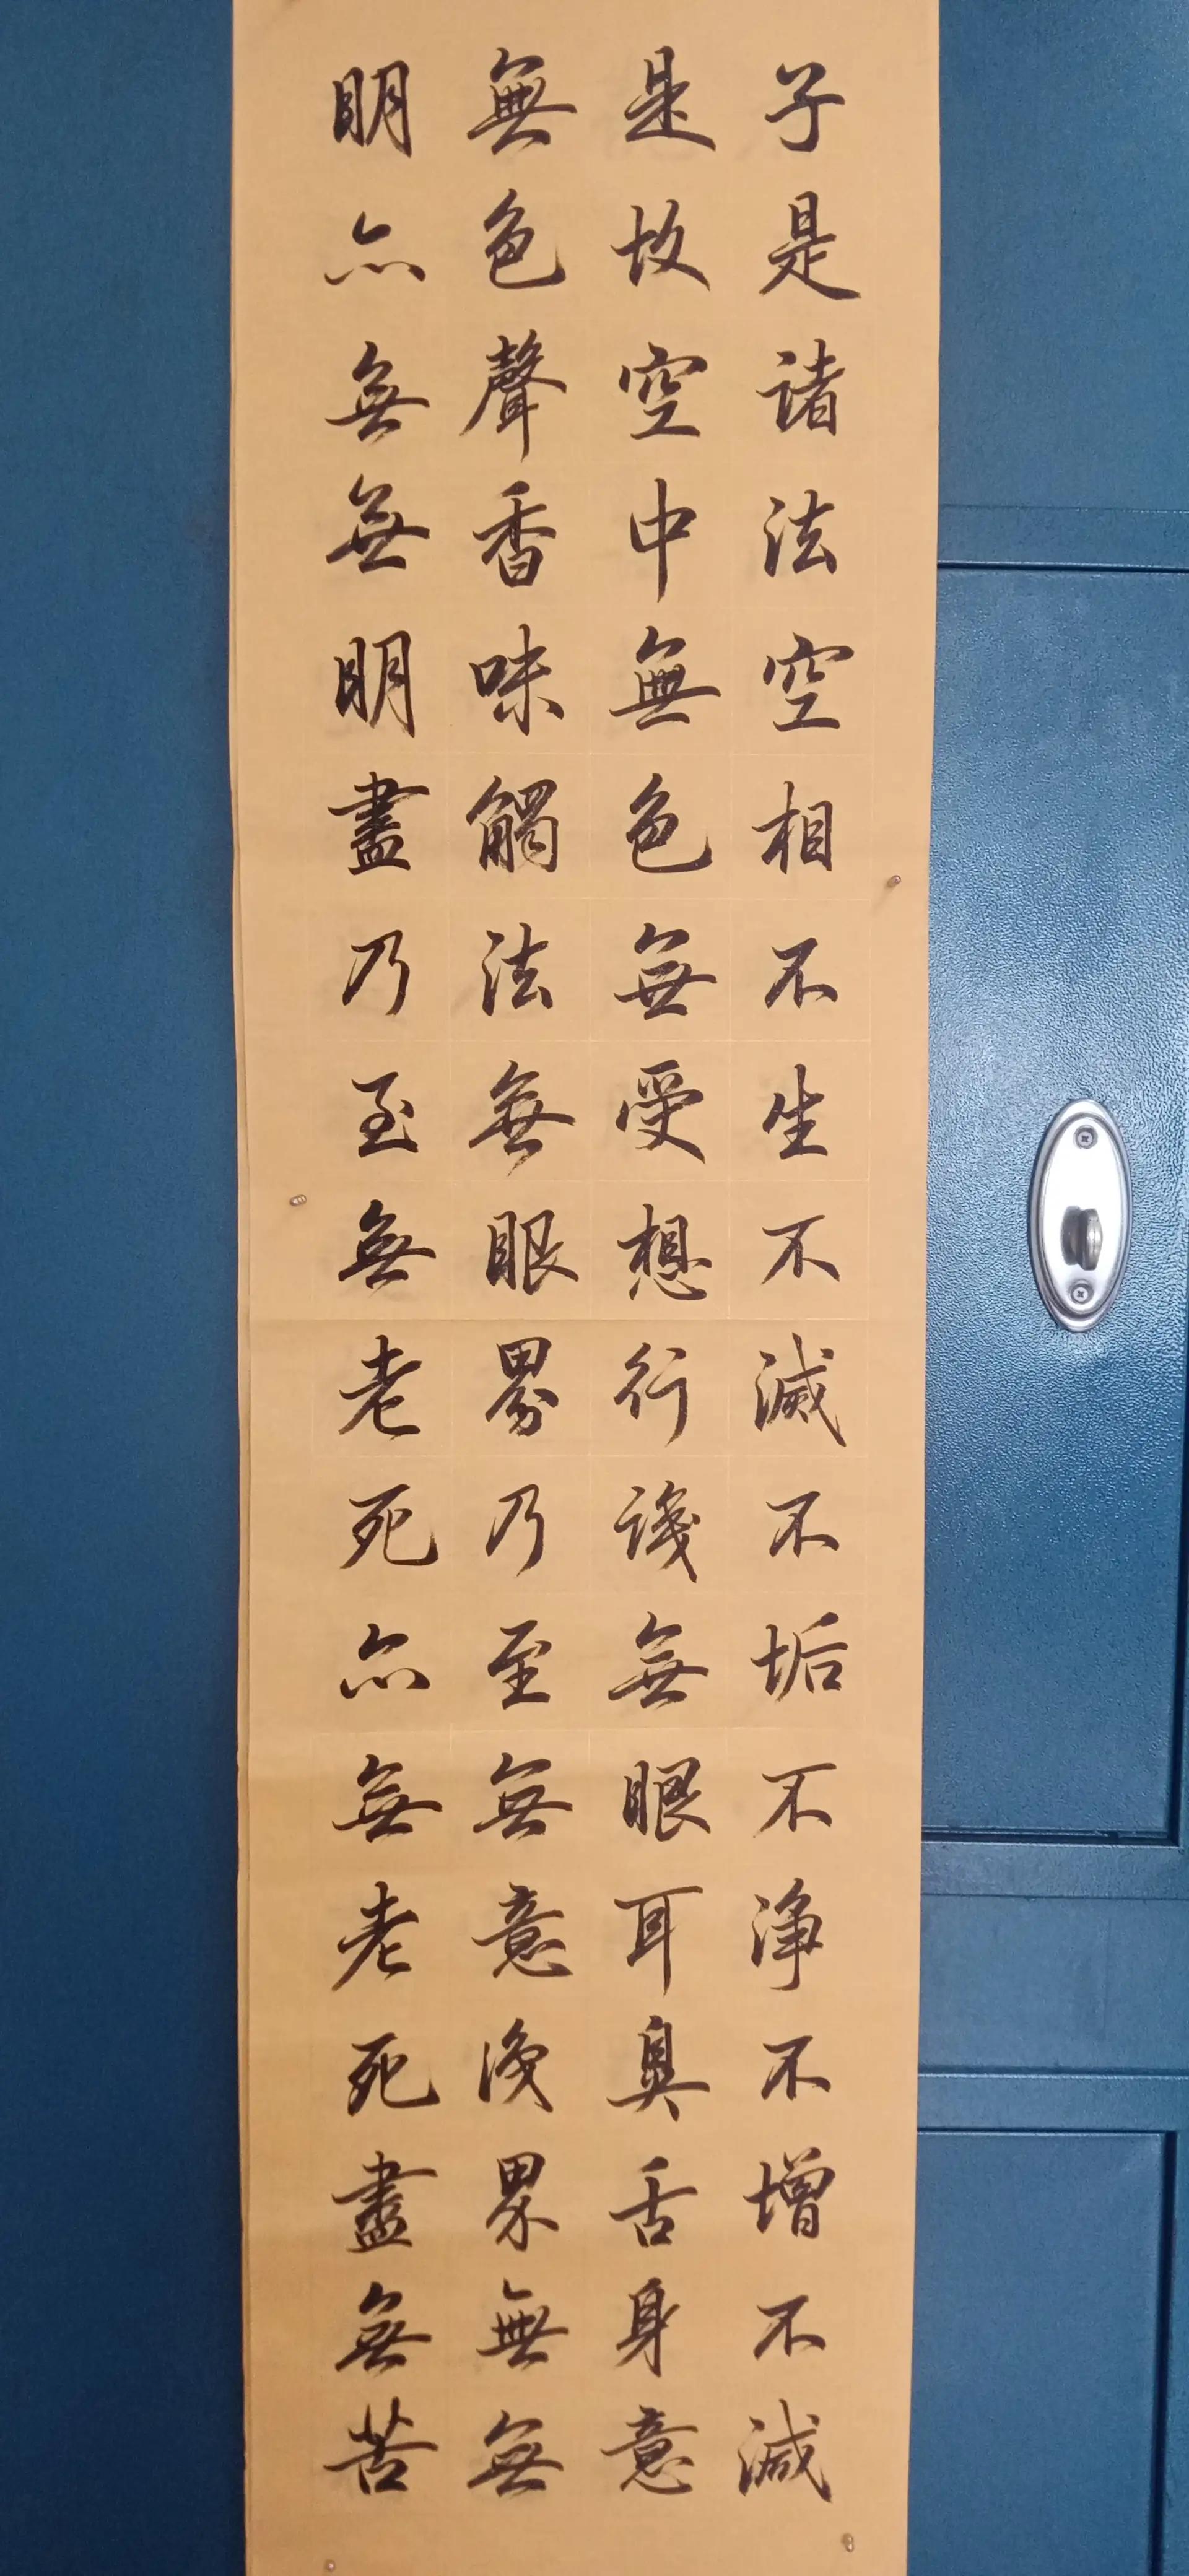 子是諸法空相不生不滅不垢不淨不增不減
是故空中無色無受想行識無眼耳鼻舌身意
無色聲香味觸法無眼界乃至無意識界無無
明亦無無明盡乃至無老死亦無老死盡無苦